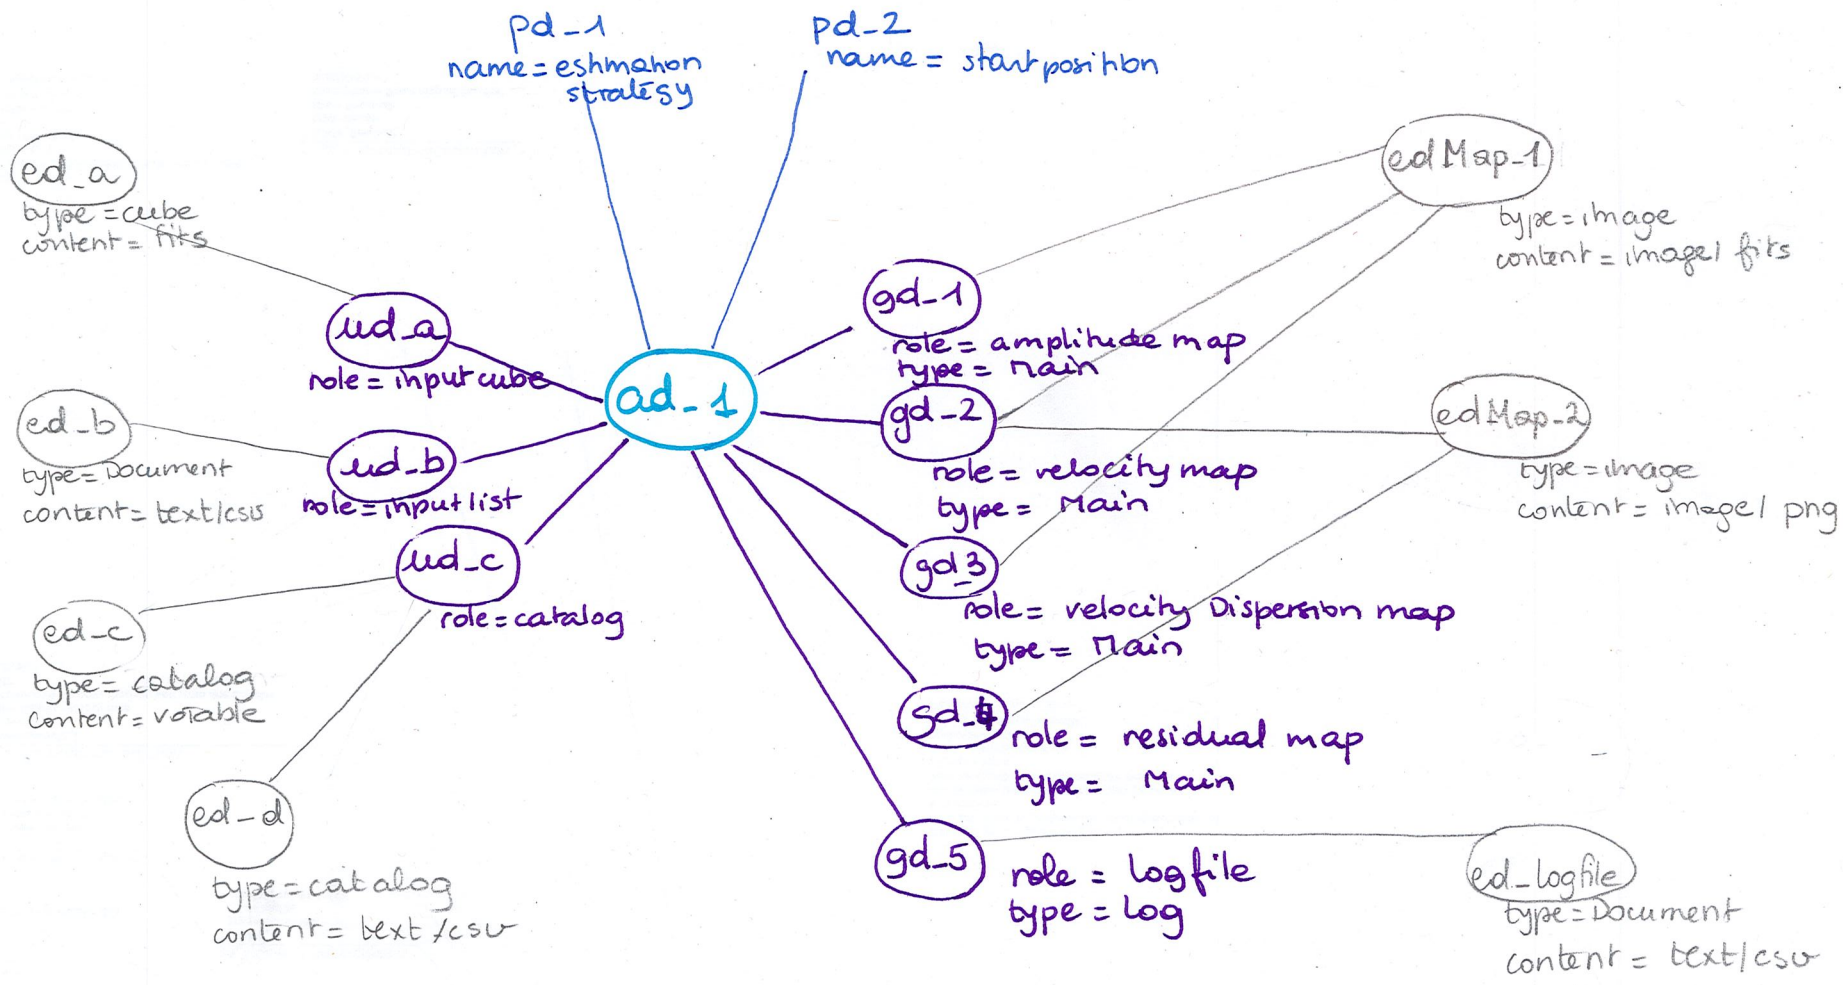 pd_1
name = estimation
strategy
pd_2
name = start position
ed_a
type = cube
content = fits
ud_a
role = input cube
ed_b
type = Document
content = text/csv
ud_b
role = input list
ud_c
role = catalog
ed_c
type = catalog
content = votable
ed_d
type = catalog
content = text/csv
ad_1
gd_1
role = amplitude map
type = Main
gd_2
role = velocity map
type = Main
gd_3
role = velocity Dispersion map
type = Main
gd_4
role = residual map
type = Main
gd_5
role = logfile
type = log
edMap_1
type = image
content = image/ fits
edMap_2
type = image
content = image/ png
ed_logfile
type = Document
content = text/csv